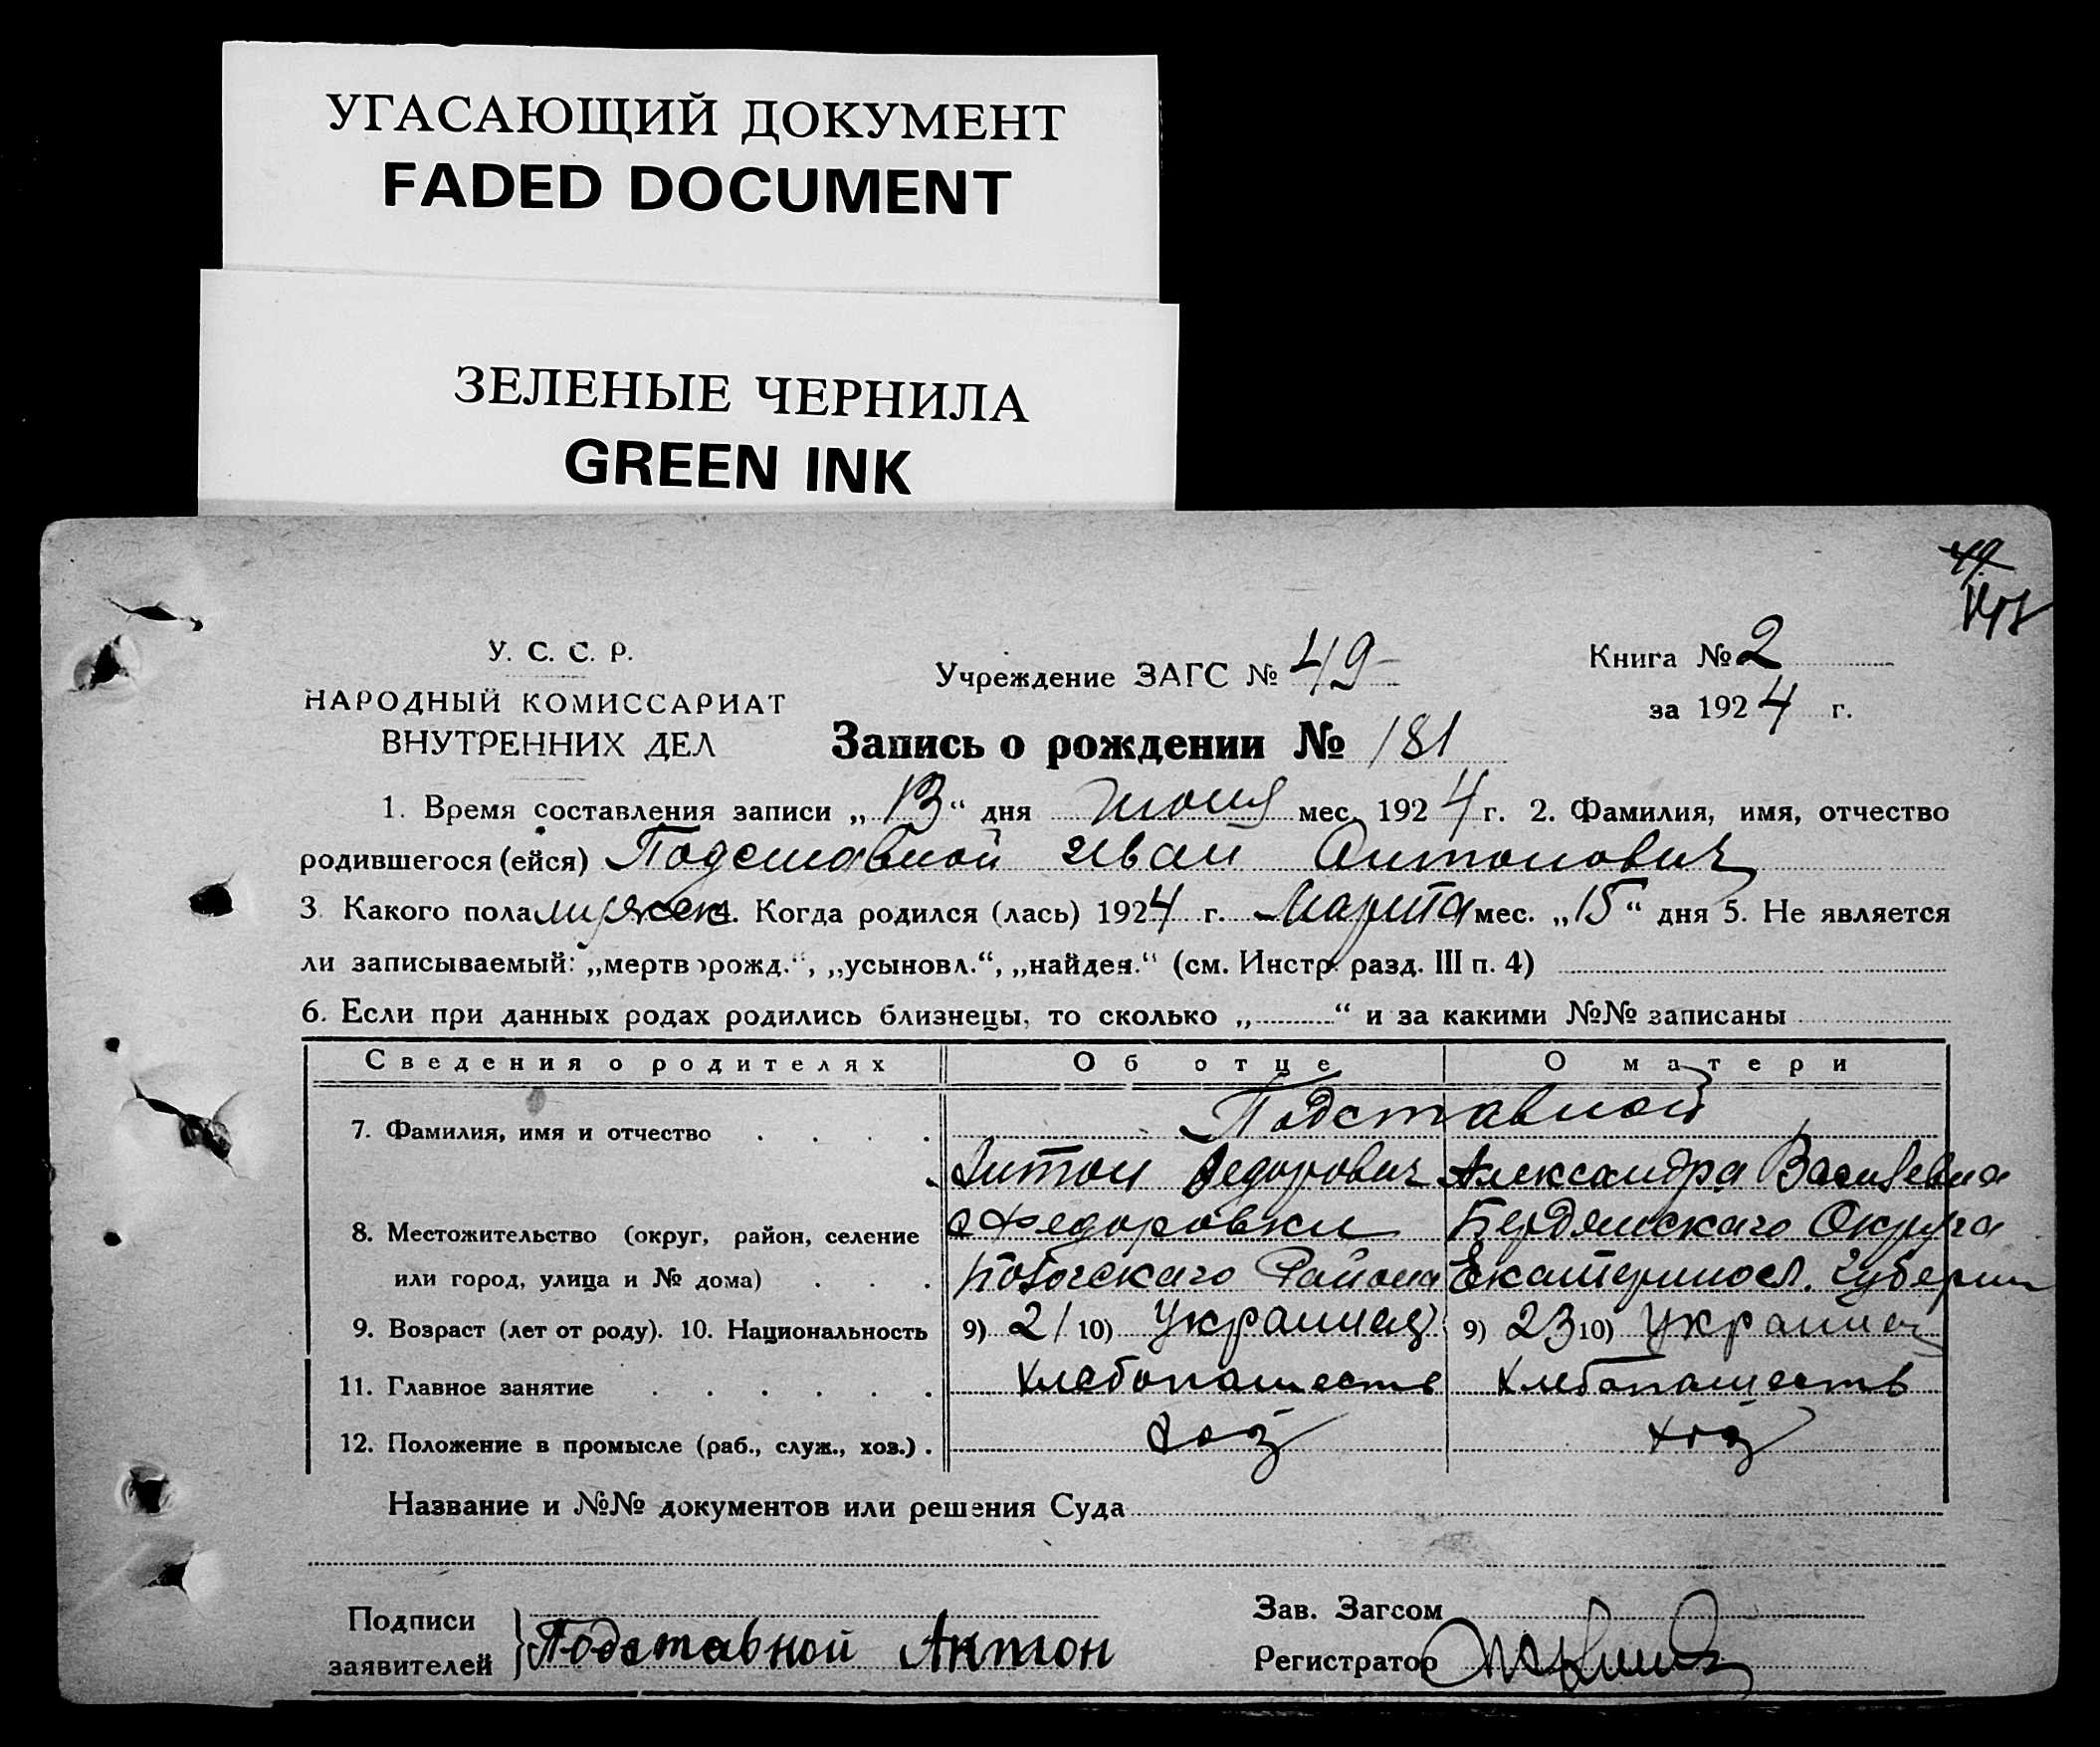 УГАСАЮЩИЙ ДОКУМЕНТ
FADED DOCUMENT
ЗЕЛЕНЫЕ ЧЕРНИЛА
GREEN INK
49
У. С. С. Р.
НАРОДНЫЙ КОМИССАРИАТ
ВНУТРЕННИХ ДЕЛ
Учреждение ЗАГС № 49
Книга № 2
за 1924 г.
Запись о рождении № 181
1. Время составления записи „13“ дня июня мес. 1924 г. 2. Фамилия, имя, отчество
родившегося (ейся) Подставной Иван Антонович
3 Какого пола 4. Когда родился (лась) 1924 г. Марта мес. „15“ дня 5. Не является
ли записываемый: „мертворожд.“, „усыновл.“, „найден.“ (см. Инстр. разд. III п. 4)
6. Если при данных родах родились близнецы, то сколько „ “ и за какими №№ записаны
Сведения о родителях Об отце О матери
7. Фамилия, имя и отчество Подставной
Антон Федорович Александра Васильевна
8. Местожительство (округ, район, селение Федоровки Бердянского Округа
или город, улица и № дома) Района Екатериносл. Губернии
9. Возраст (лет от роду). 10. Национальность 9) 21 10) Украинец 9) 23 10)
11. Главное занятие Хлебопашеств Хлебопашеств
12. Положение в промысле (раб., служ., хоз.) хоз хоз
Название и №№ документов или решения Суда
Подписи
заявителей } Подставной Антон
Зав. Загсом
Регистратор